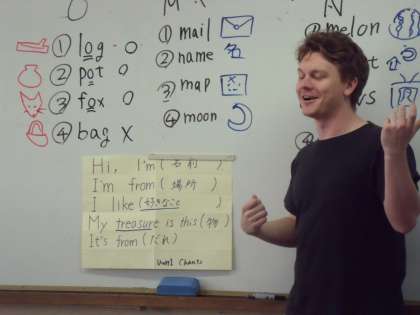 O
M
N
① log O
② pot O
③ fox O
④ bag X
① mail
② name 名
③ map
④ moon
melon
Hi, I'm (名前)
I'm from (場所)
I like (好きなこと)
My treasure is this (物)
It's from (だれ)
Unit 1 Chants